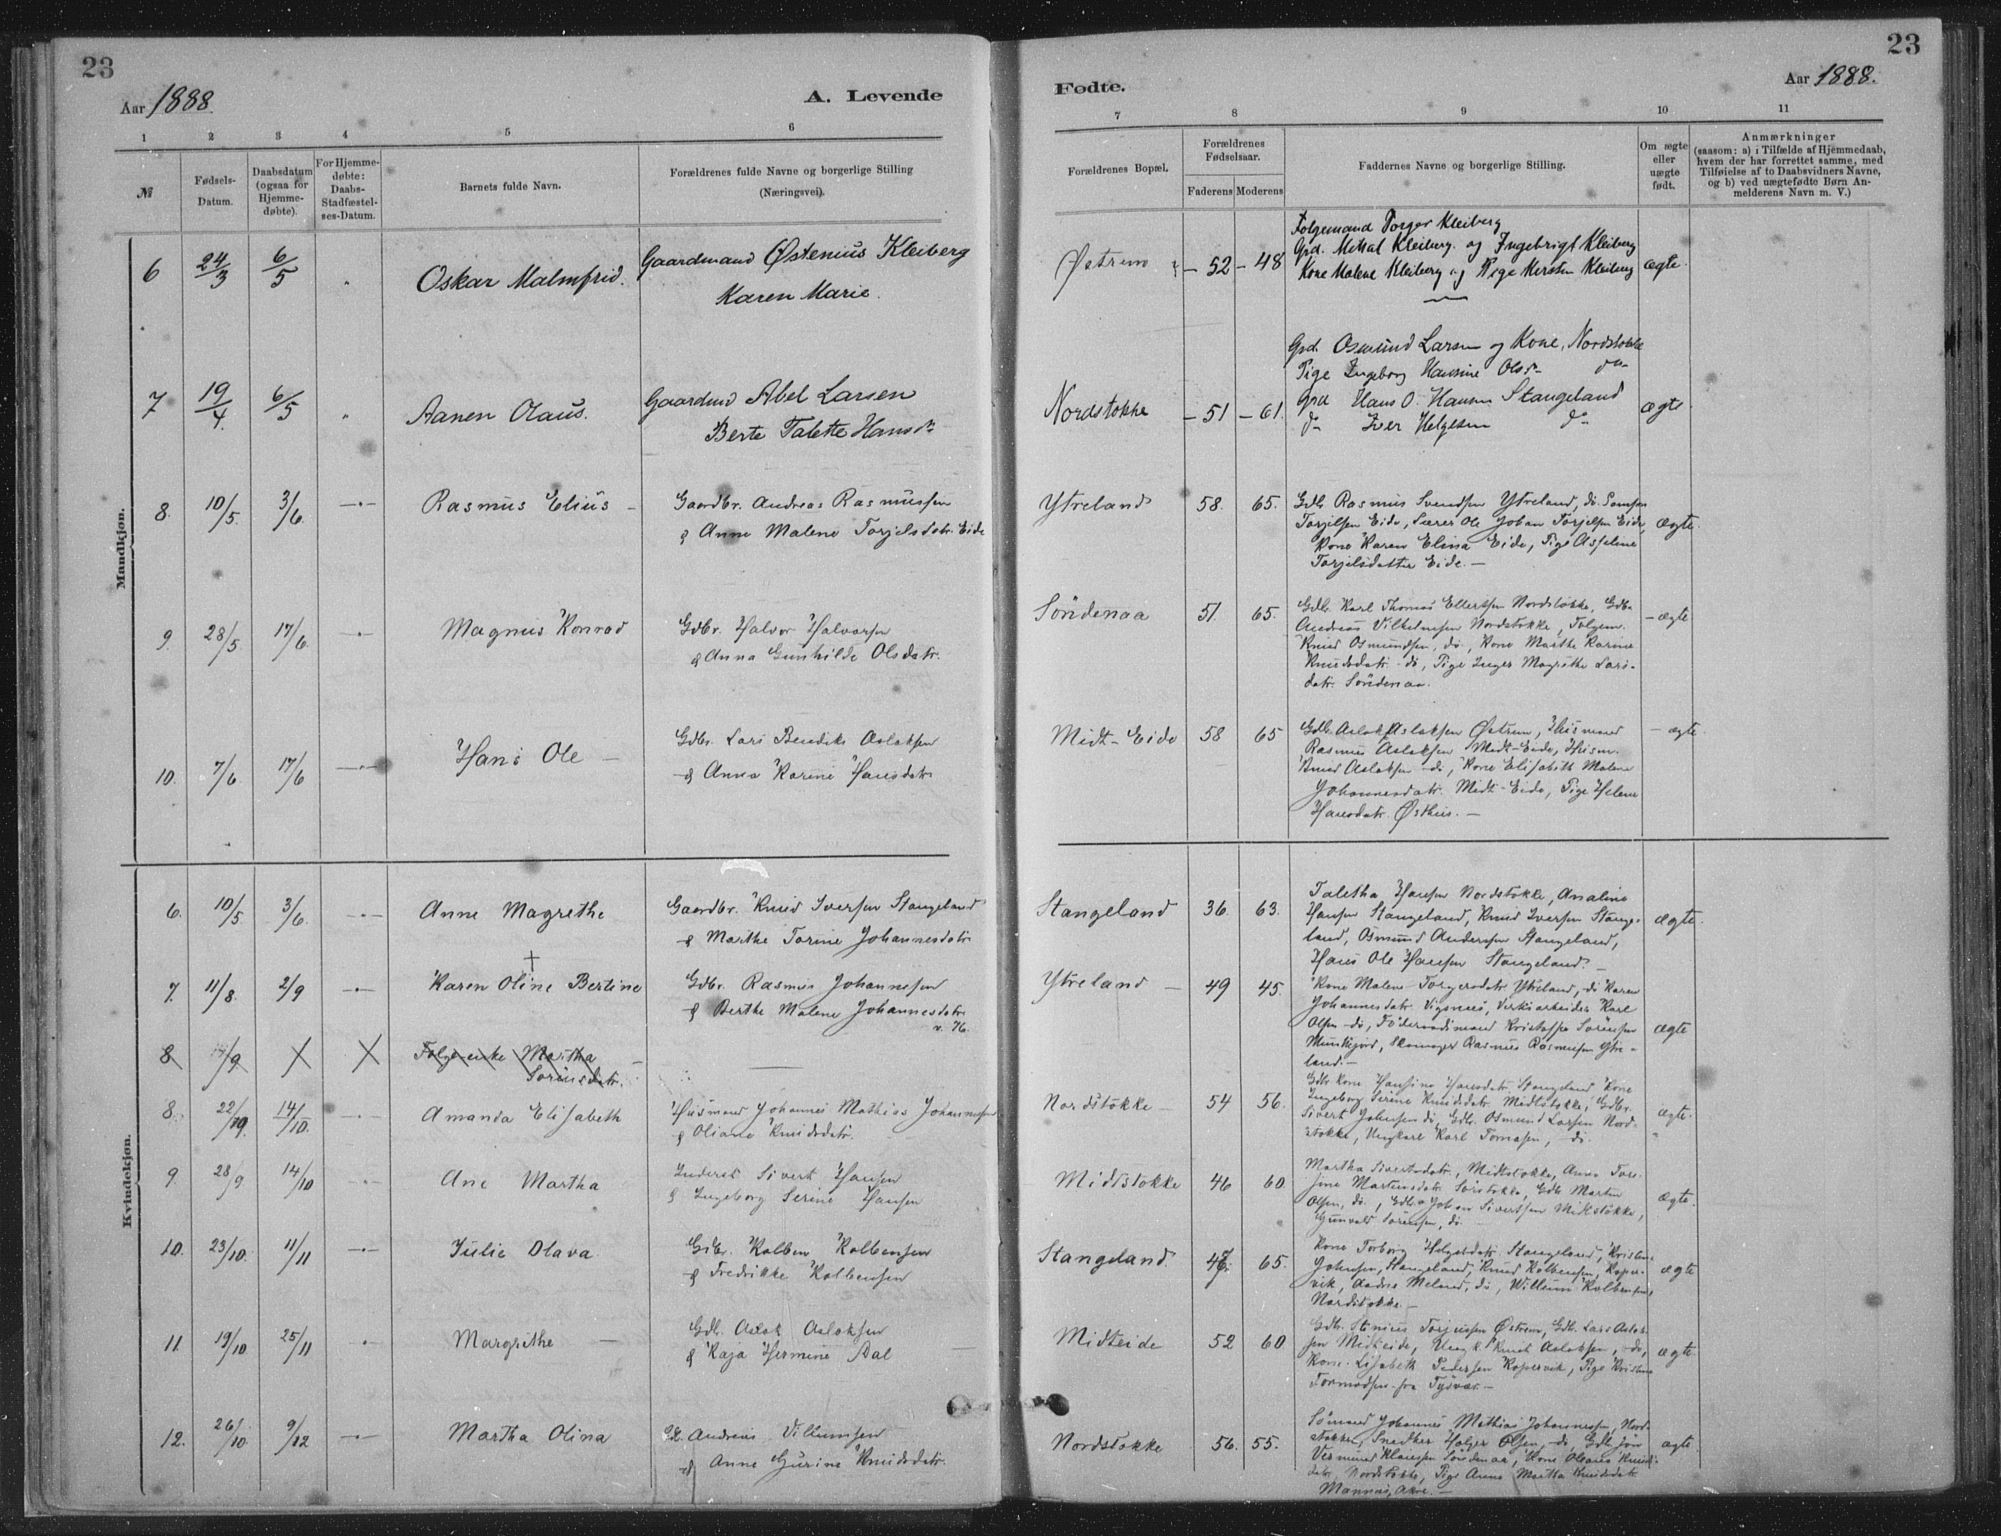 23
23
Aar 1888.
A. Levende
Fødte.
Aar 1888.
1 2 3 4 5 6
7 8 9 10 11
№
Fødsels-Datum.
Daabsdatum (ogsaa for Hjemmedøbte).
For Hjemmedøbte: Daabs-Stadfæstelses-Datum.
Barnets fulde Navn.
Forældrenes fulde Navne og borgerlige Stilling (Næringsvei).
Forældrenes Bopæl.
Forældrenes Fødselsaar.
Faderens Moderens
Faddernes Navne og borgerlige Stilling.
Om ægte eller uægte født.
Anmærkninger
(saasom: a) i Tilfælde af Hjemmedaab, hvem der har forrettet samme, med Tilføielse af to Daabsvidners Navne, og b) ved uægtefødte Børn Anmelderens Navn m. V.)
Mandkjøn.
6 24/3 6/5 " Oskar Malmfrid. Gaardmand Østenius Kleiberg
Karen Marie.
Østrem - 52 - 48 Folgemand Torger Kleiberg
Grd. Mikal Kleiberg og Ingebrigt Kleiberg
Kone Malene Kleiberg og Pige Kersten Kleiberg ægte.
7 19/4. 6/5 " Aanen Olaus. Gaardmd Abel Larsen
Berte Talette Hansdr
Nordstokke - 51 - 61. Grd. Osmund Larsen og Kone, Nordstokke
Pige Ingeborg Hansine Olsdr do
Grd Hans O. Hansen Stangeland ægte
do Iver Helgesen do
8. 10/5. 3/6. -"- Rasmus Elius - Gaardbr. Andreas Rasmussen
& Anne Malene Torjelsdatr. Eide
Ytreland 58. 65. Gdb. Rasmus Svendsen Ytreland, do. Samson
Torjilsen Eide, Lærer Ole Johan Torjilsen Eide, ægte.
Kone Karen Elina Eide, Pige Asseline
Torjelsdatter Eide. -
9. 28/5. 17/6. -"- Magnus Konrad Gdbr. Halvor Halvorsen
& Anna Gunhilde Olsdatr.
Søndenaa 51. 65. Gdb. Karl Thomas Ellertsen Nordstokke, Gdb.
Andreas Vilhelmsen Nordstokke, Folgem. - ægte
Knud Osmundsen, do., Kone Marthe Karine
Knudsdatr. do, Pige Inger Magrethe Lars-
datr. Søndenaa.
10. 7/6. 17/6 -"- Hans Ole - Gdbr. Lars Bendiks Aslaksen
& Anna Karine Hansdatr.
Midt-Eide 58 65 Gdb. Aslak Aslaksen Østrem, Husmand - ægte.
Rasmus Aslaksen Midt-Eide, Husm.
Knud Aslaksen - do, Kone Elisabeth Malene
Johannesdatr. Midt-Eide, Pige Helene
Hansdatr. Østhus. -
Kvindekjøn.
6. 10/5 3/6. -"- Anne Magrethe Gaardbr. Knud Iversen Stangeland
& Marthe Torine Johannesdatr.
Stangeland 36. 63. Taletha Hansen Nordstokke, Analine
Hansen Stangeland, Knud Iversen Stange- ægte.
land, Osmund Andersen Stangeland,
Hans Ole Hansen Stangeland. -
7. 11/8. 2/9 -"- † Karen Oline Bertine Gdbr. Rasmus Johannessen
& Berthe Malene Johannesdatr.
v. 76.
Ytreland - 49 45. Kone Malene Torgersdatr. Ytreland, do Karen
Johannesdatr. Vigsnes, Verksarbeider Karl
Olsen - do, Føderaadsmand Kristoffer Sørensen ægte
Munkejord, Skomager Rasmus Rasmussen Ytre-
land. -
8 /9 Folge enke Martha
Sørensdatr.
8. 22/9. 14/10. -"- Amanda Elisabeth Husmand Johannes Mathias Johannessen
& Oliane Knudsdatr.
Nordstokke - 54 56. Gdb. kone Hansine Hansdatr. Stangeland, Kone
Ingeborg Serine Knudsdatr. Midtstokke, Gdbr. ægte.
Sivert Johnsen do, Gdb. Osmund Larsen Nord-
stokke, Ungkarl Karl Tomasen, - do.
9. 28/9 14/10 -"- Ane Martha Inderst Sivert Hansen
& Ingeborg Serine Hansen
Midtstokke 46 60. Martha Sivertsdatr., Midtstokke, Anne Tor-
sine Martinsdatr. Sørstokke, Gdb. Martin
Olsen, do., Gdb. Johan Sivertsen Midtstokke, ægte.
Gunvald Sørensen, do.
10. 23/10. 11/11 -"- Julie Olava. Gdbr. Kolben Kolbensen
& Fredrikke Kolbensen
Stangeland. 47. 65. Kone Torborg Helgesdatr. Stangeland, Kristine
Johnsen, Stangeland, Knud Kolbensen, Koper- ægte
vik, Andrea Meland, do, Willum Kolbensen,
Nordstokke. -
11. 19/10 25/11 -"- Margrithe - Gdb. Aslak Aslaksen
& Kaja Hermine Aal
Midteide 52 60 Gdb. Stenius Torjussen Østrem, Gdb. Lars Aslak-
sen Midteide, Ungk. Knud Aslaksen, - do, ægte.
Kone Lisabeth Pedersen Kopervik, Pige Kristine
Tormodsen fra Tysvær. -
12. 26/10 9/12 -"- Martha Olina Andreas Villumsen
& Anne Gurine Knudsdatr.
Nordstokke 56. 55. Sømand Johannes Mathias Johannessen, Nord-
stokke, Snedker Holger Olsen, - do, Gdb. Jon ægte.
Vermund Klausen Søndenaa, Kone Oleane Knuds-
datr. Nordstokke, Pige Anna Martha Knudsdatr.
Mannes, Akre. -